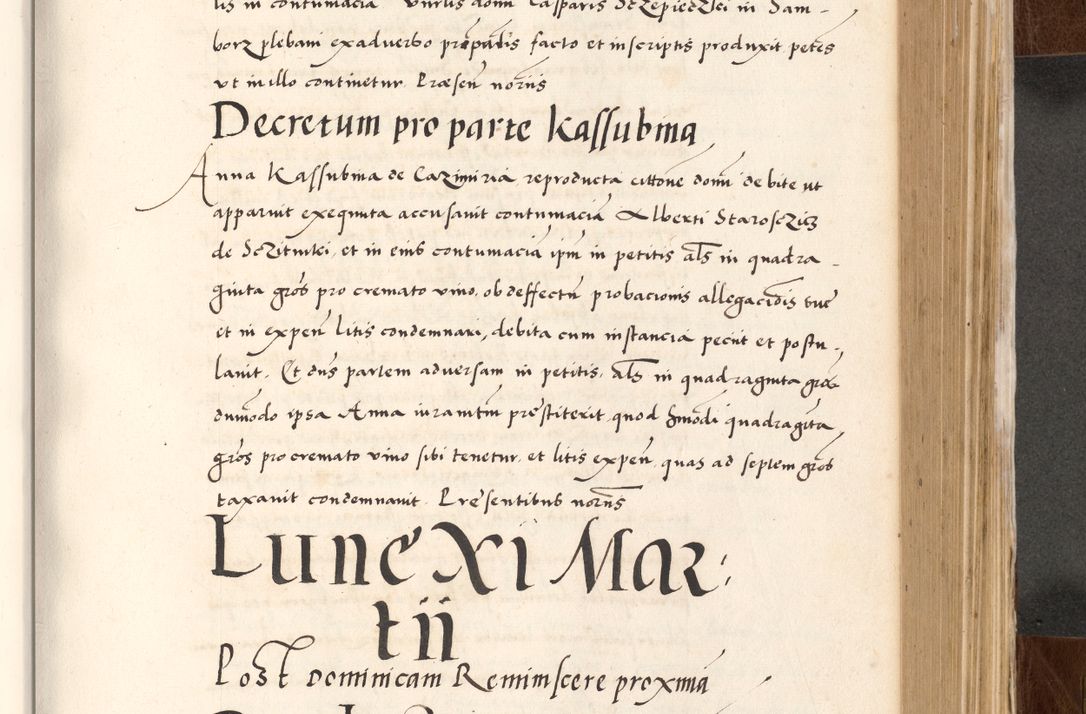 lis in contumacia Vnrlis domi Casparis Sczepieczski in Sam-
borz plebani exadverbo præpatis facto et inscriptis produxit petes
vt in illo continetur. Præsen noriis
Decretum pro parte Kassubina
Anna Kassubina de Cazimiria reproducta cittone domi debite ut
apparuit exequuta accusavit contumacia Alberti Starosczicz
de Sczitniki, et in eius contumacia ipm in petitis als in quadra-
ginta gros pro cremato vino, ob deffectu probacionis allegacionis sue
et in expen litis condemnari, debita cum instancia peciit et postu-
lavit. Et dns partem adversam in petitis, als in quadraginta gros
dumodo ipsa Anna iuramtm præstiterit quod hmodi quadragita
gros pro cremato vino sibi tenetur, et litis expen, quas ad septem gros
taxavit condemnavit. Præsentibus norns
Lune Xi Mar:
tii
Post Dominicam Reminiscere proxima